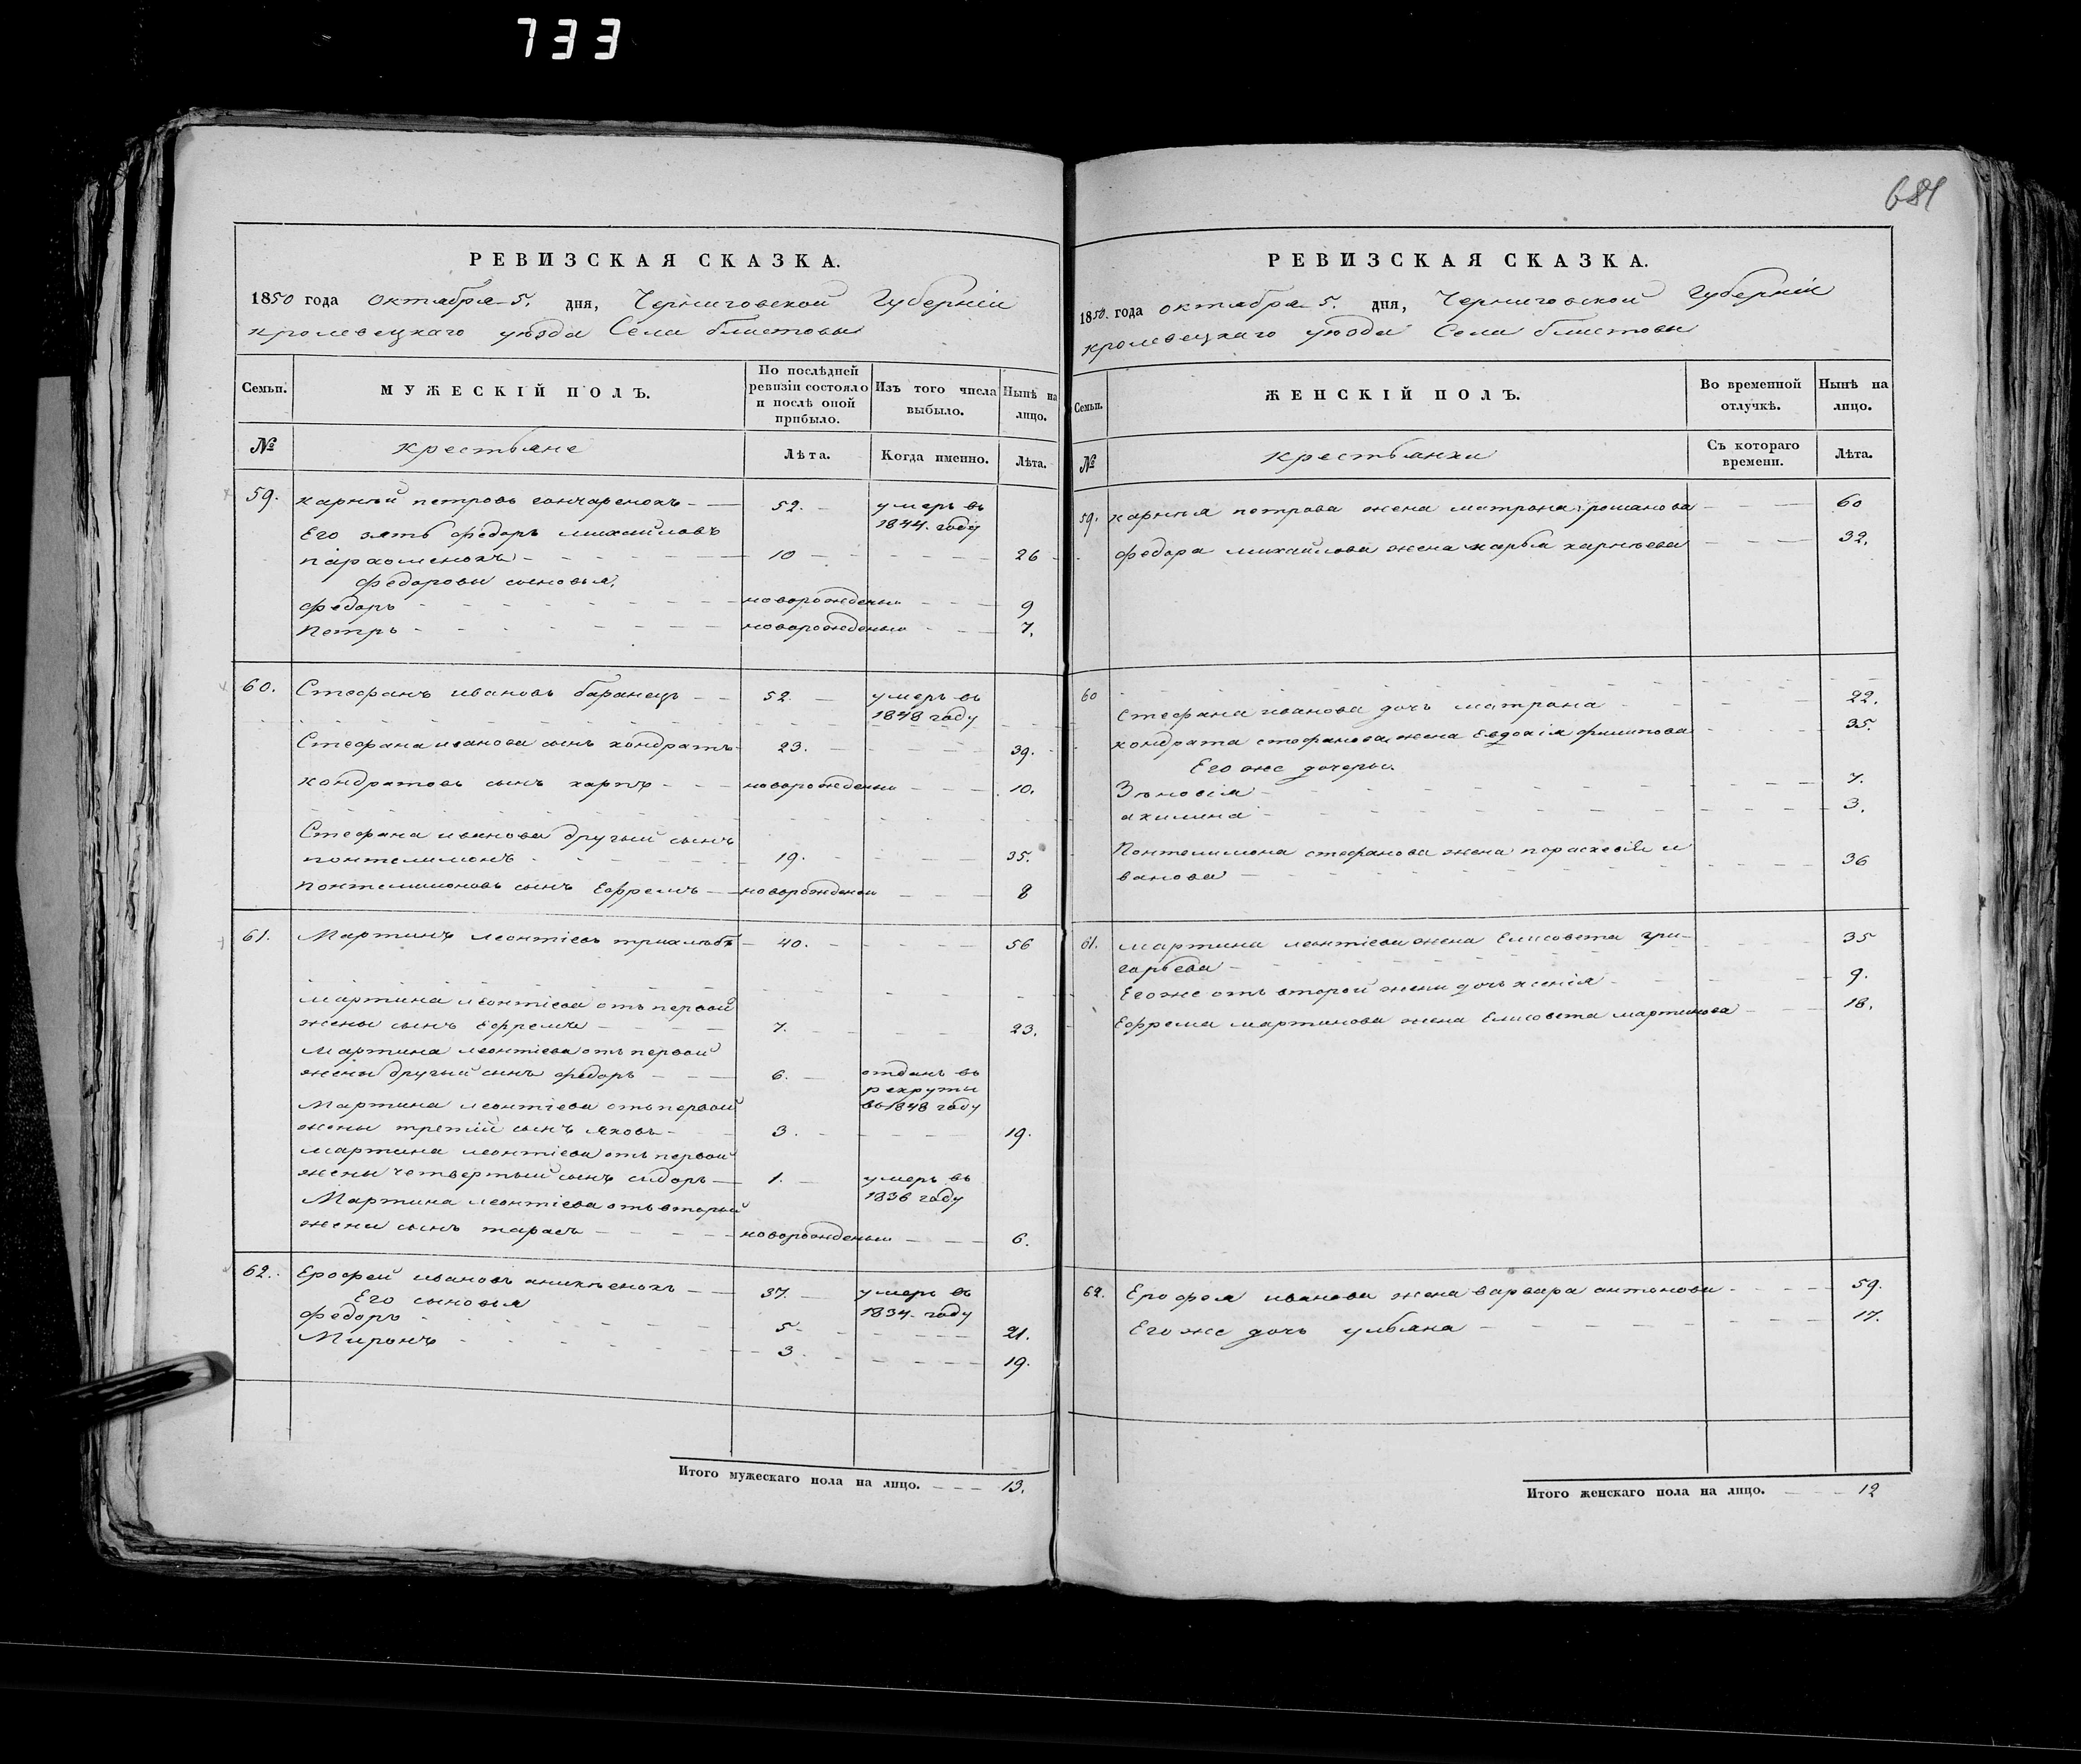 733
681
РЕВИЗСКАЯ СКАЗКА.
1850 года октября 5. дня, Черниговской Губерніи
кролевецкаго уѣзда Села блистовы
Семьи.
МУЖЕСКІЙ ПОЛЪ.
По послѣдней ревизіи состояло и послѣ оной прибыло.
Изъ того числа выбыло.
Нынѣ на лицо.
№
крестьяне
Лѣта.
Когда именно.
Лѣта.
59. карнѣй петровъ гончаренокъ 52. умеръ въ
1844. году
Его зять федоръ михайловъ
пархоменокъ 10 26
федоровы сыновья,
федоръ новорожденый 9
Петръ новорожденый 7.
60. Стефанъ ивановъ баранецъ 52. умеръ въ
1848 году
Стефана иванова сынъ кондратъ 23. 39.
кондратовъ сынъ карпъ новорожденый 10.
Стефана иванова другий сынъ
понтелимонъ 19. 35.
понтелимоновъ сынъ Ефремъ новорожденый 8
61. Мартинъ леонтіевъ 40. 56
мартина леонтіева отъ первой
жены сынъ Ефремъ 7. 23.
мартина леонтіева отъ первой
жены другий сынъ федоръ 6. отданъ въ
рекруты
въ 1848 году
мартина леонтіева отъ первой
жены третий сынъ яковъ 3. 19.
мартина леонтіева отъ первой
жены четвертый сынъ сидоръ 1. умеръ въ
1836 году
Мартина леонтіева отъ вторый
жены сынъ тарасъ новорожденый 6.
62. Ерофей ивановъ аникѣенокъ 37. умеръ въ
1834. году
Его сыновья
федоръ 5. 21.
Миронъ 3. 19.
Итого мужескаго пола на лицо. 13.
РЕВИЗСКАЯ СКАЗКА.
1850. года октября 5. дня, Черниговской Губерніи
кролевецкаго уѣзда Села блистовы
Семьи.
ЖЕНСКІЙ ПОЛЪ.
Во временной отлучкѣ.
Нынѣ на лицо.
№
крестьянки
Съ котораго времени.
Лѣта.
59. карнѣя петрова жена матрона романова 60
федора михайлова жена марья карнѣева 32.
60
Стефана иванова дочь матрона 22.
кондрата стефанова жена Евдокія филипова 35.
Его же дочеры.
Зѣновія 7.
акилина 3.
Понтелимона стефанова жена параскевія и
ванова 36
61. мартина леонтіева жена Елисовета гри-
горьева 35
Его же отъ второй жены дочь ксенія 9.
Ефрема мартинова жена Елисовета мартинова 18.
62. Ерофея иванова жена варвара антонова 59.
Его же дочь ульяна 17.
Итого женскаго пола на лицо. 12